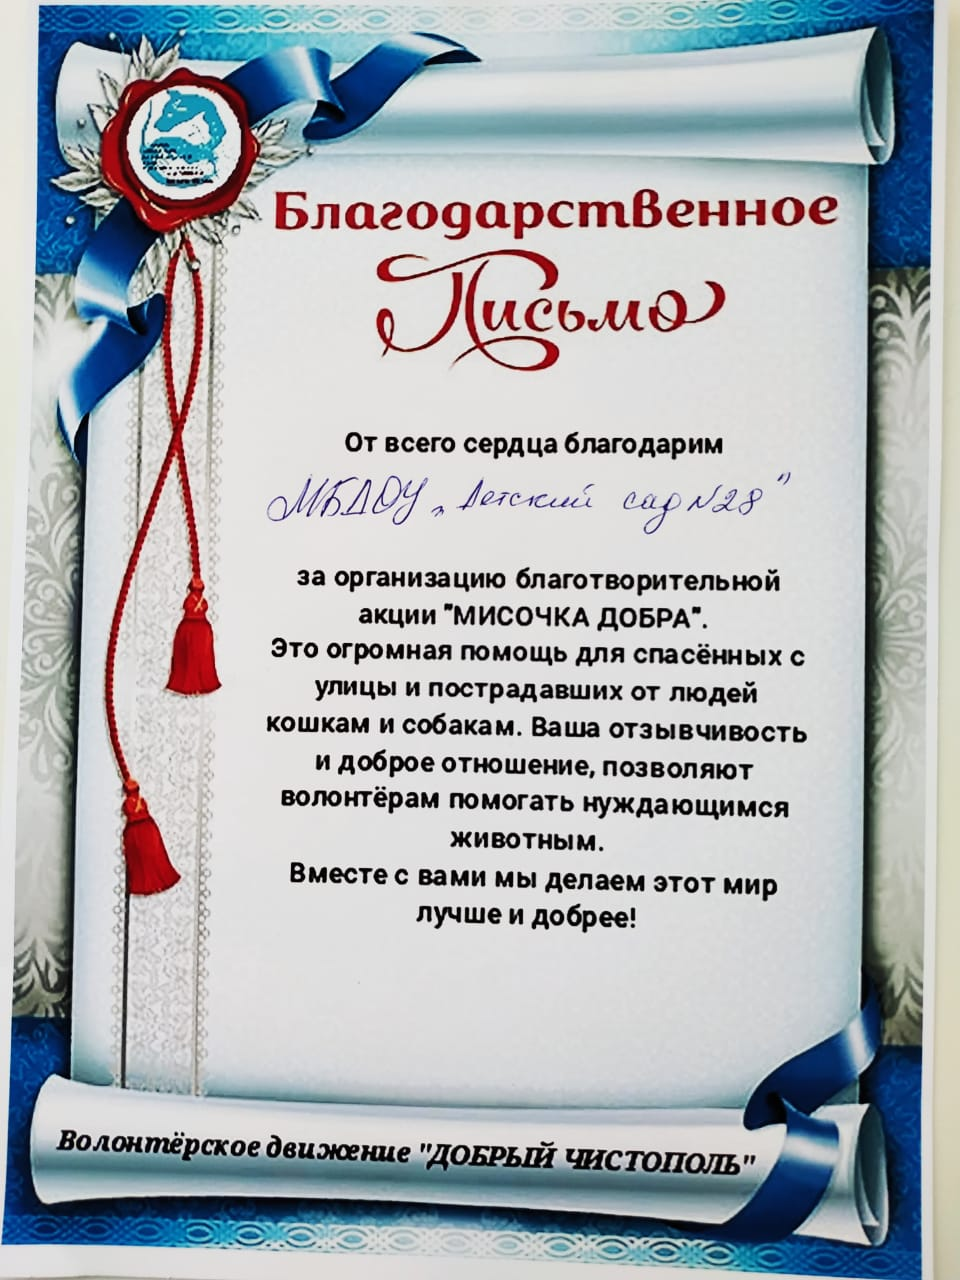 Благодарственное
Письмо
От всего сердца благодарим
МБДОУ „Детский сад №28"
за организацию благотворительной
акции "МИСОЧКА ДОБРА".
Это огромная помощь для спасённых с
улицы и пострадавших от людей
кошкам и собакам. Ваша отзывчивость
и доброе отношение, позволяют
волонтёрам помогать нуждающимся
животным.
Вместе с вами мы делаем этот мир
лучше и добрее!
Волонтёрское движение "ДОБРЫЙ ЧИСТОПОЛЬ"